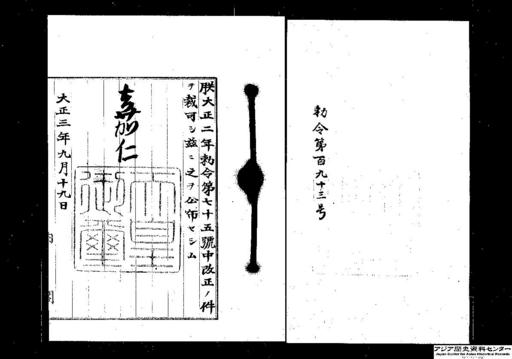 勅令第百九十三号
朕大正二年勅令第七十五號中改正ノ件
ヲ裁可シ茲ニ之ヲ公布セシム
嘉仁
天皇
御璽
大正三年九月十九日
内閣
アジア歴史資料センター
Japan Center for Asian Historical Records